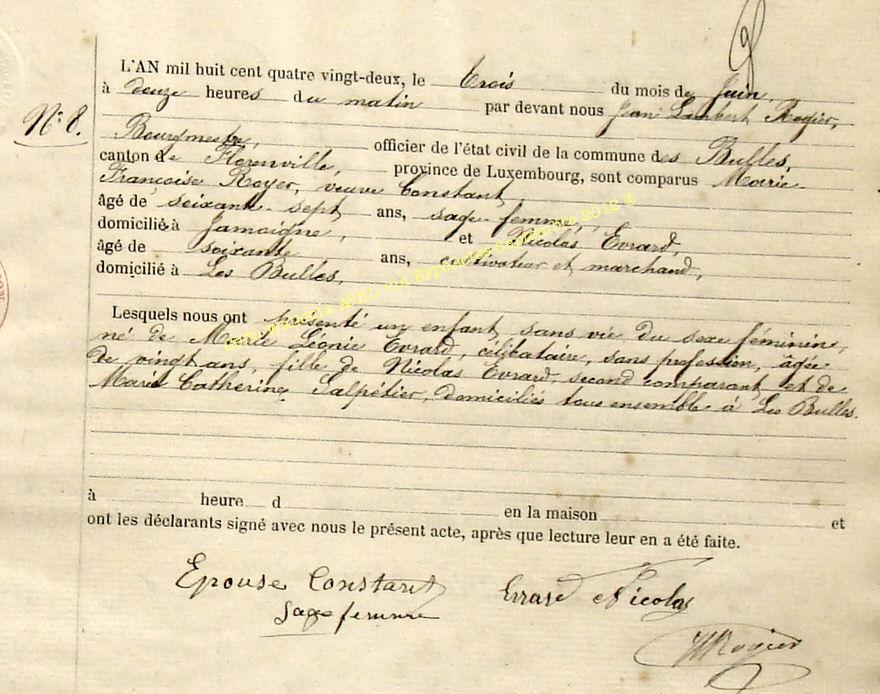 L'AN mil huit cent quatre vingt-deux, le trois du mois de Juin,
à deuze heures du matin par devant nous Jean Lambert Rogier,
N: 8.
Bourgmestre, officier de l'état civil de la commune des Bulles,
canton de Florenville, province de Luxembourg, sont comparus Marie
Françoise Royer, veuve Constant,
âgé de soixante-sept ans, sage-femme,
domicilié à Jamoigne, et Nicolas Evrard,
âgé de soixante ans, cultivateur et marchand,
domicilié à Les Bulles,
Lesquels nous ont présenté un enfant sans vie du sexe féminin,
né de Marie Léonie Evrard, célibataire, sans profession, âgée
de vingt ans, fille de Nicolas Evrard, second comparant, et de
Marie Catherine Salpétier, domiciliés tous ensemble à Les Bulles.
à heure d en la maison et
ont les déclarants signé avec nous le présent acte, après que lecture leur en a été faite.
Epouse Constant Evrard Nicolas
Sage femme
Rogier